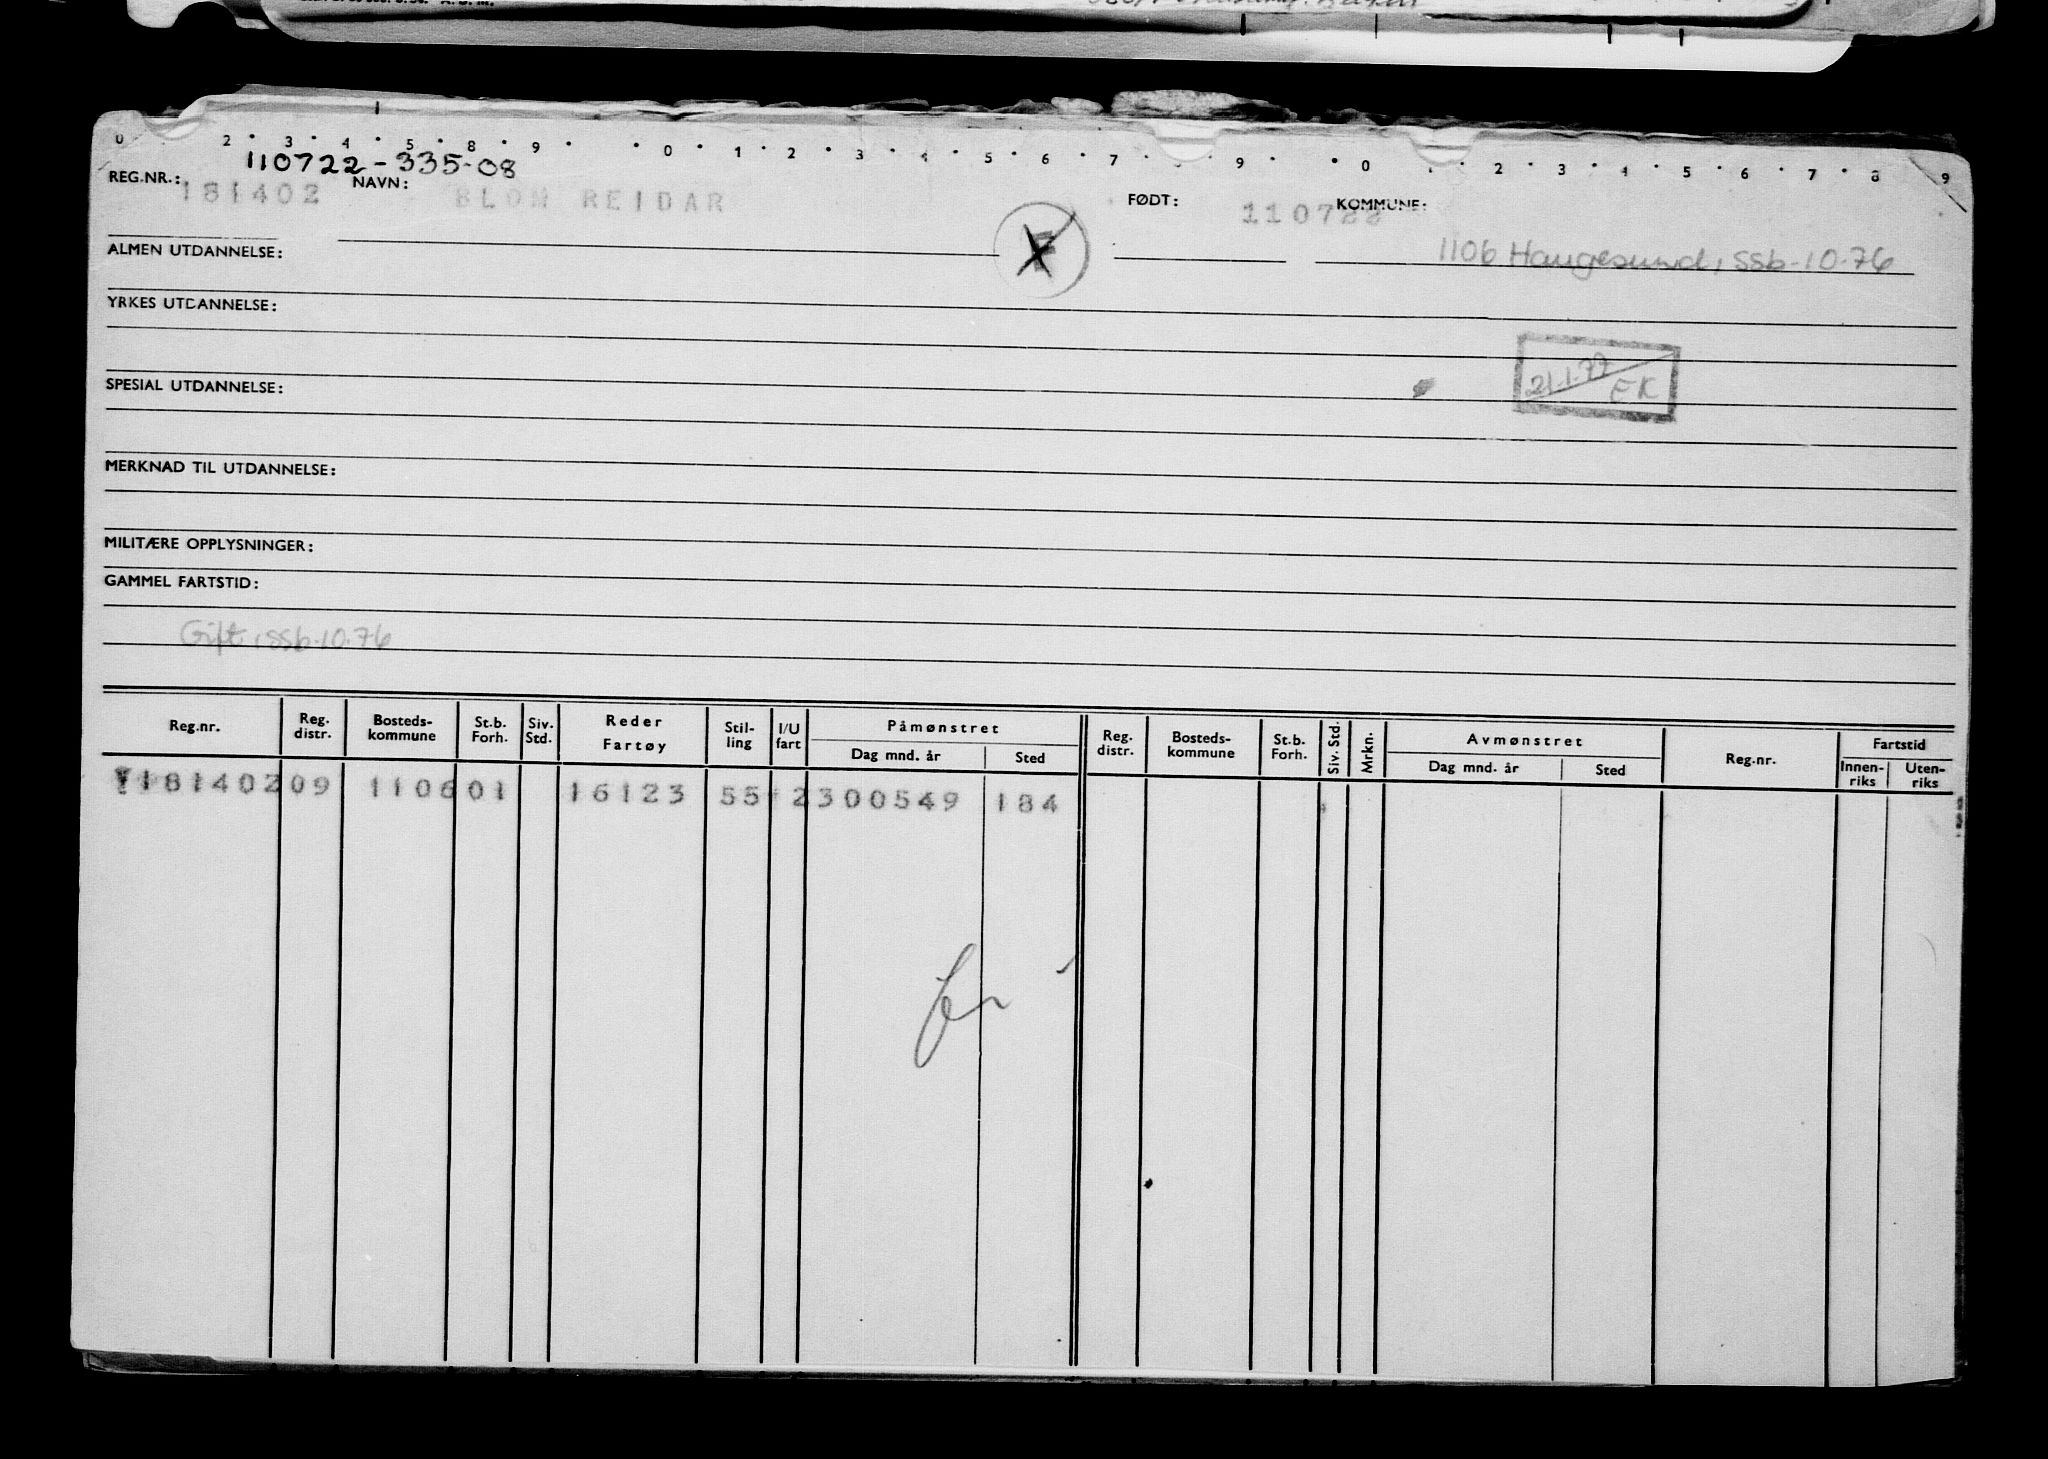 0 2 3 4 5 8 9 0 1 2 3 4 5 6 7 9 0 2 3 4 5 6 7 8 9
110722-335-08
REG.NR.: 181402 NAVN: BLOM REIDAR FØDT: 110722 KOMMUNE:
ALMEN UTDANNELSE: F 1106 Haugesund, ssb-10-76
YRKES UTDANNELSE:
21.1.77 EK
SPESIAL UTDANNELSE:
MERKNAD TIL UTDANNELSE:
MILITÆRE OPPLYSNINGER:
GAMMEL FARTSTID:
Gift, ssb-10-76
Reg.nr. Reg. distr. Bosteds-kommune St.b. Forh. Siv. Std. Reder Fartøy Stil-ling I/U fart Påmønstret Dag mnd. år Sted Reg. distr. Bosteds-kommune St.b. Forh. Siv. Std. Mrkn. Avmønstret Dag mnd. år Sted Reg.nr. Fartstid Innen-riks Uten-riks
181402 09 1106 01 16123 55 2 300549 184